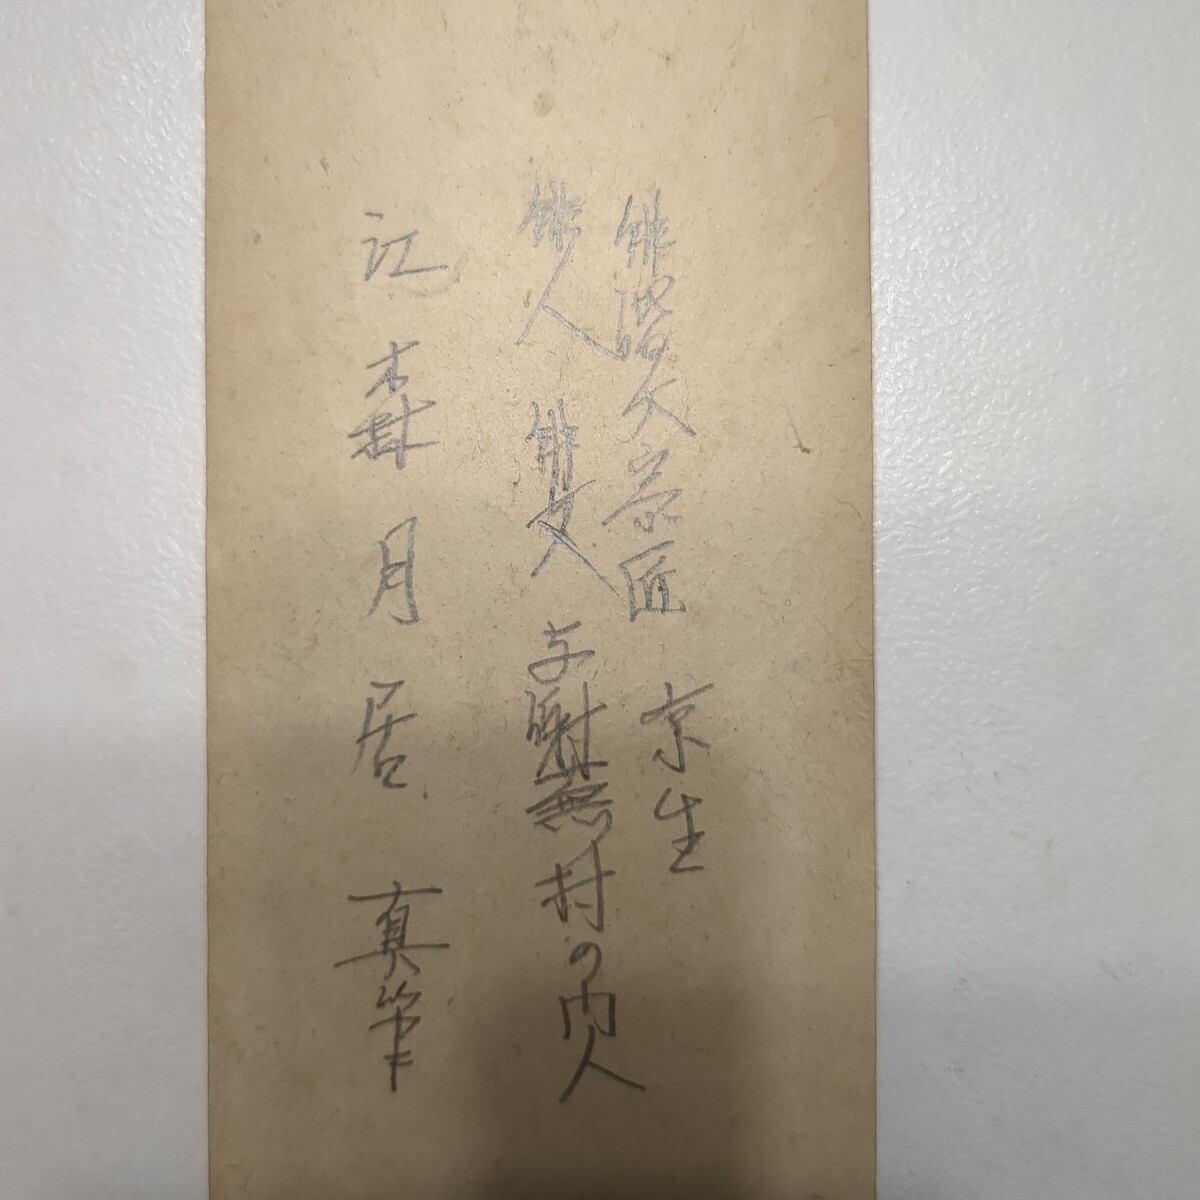 俳諧大宗匠 京生
俳人 俳文 与謝蕪村の門人
江森月居 真筆